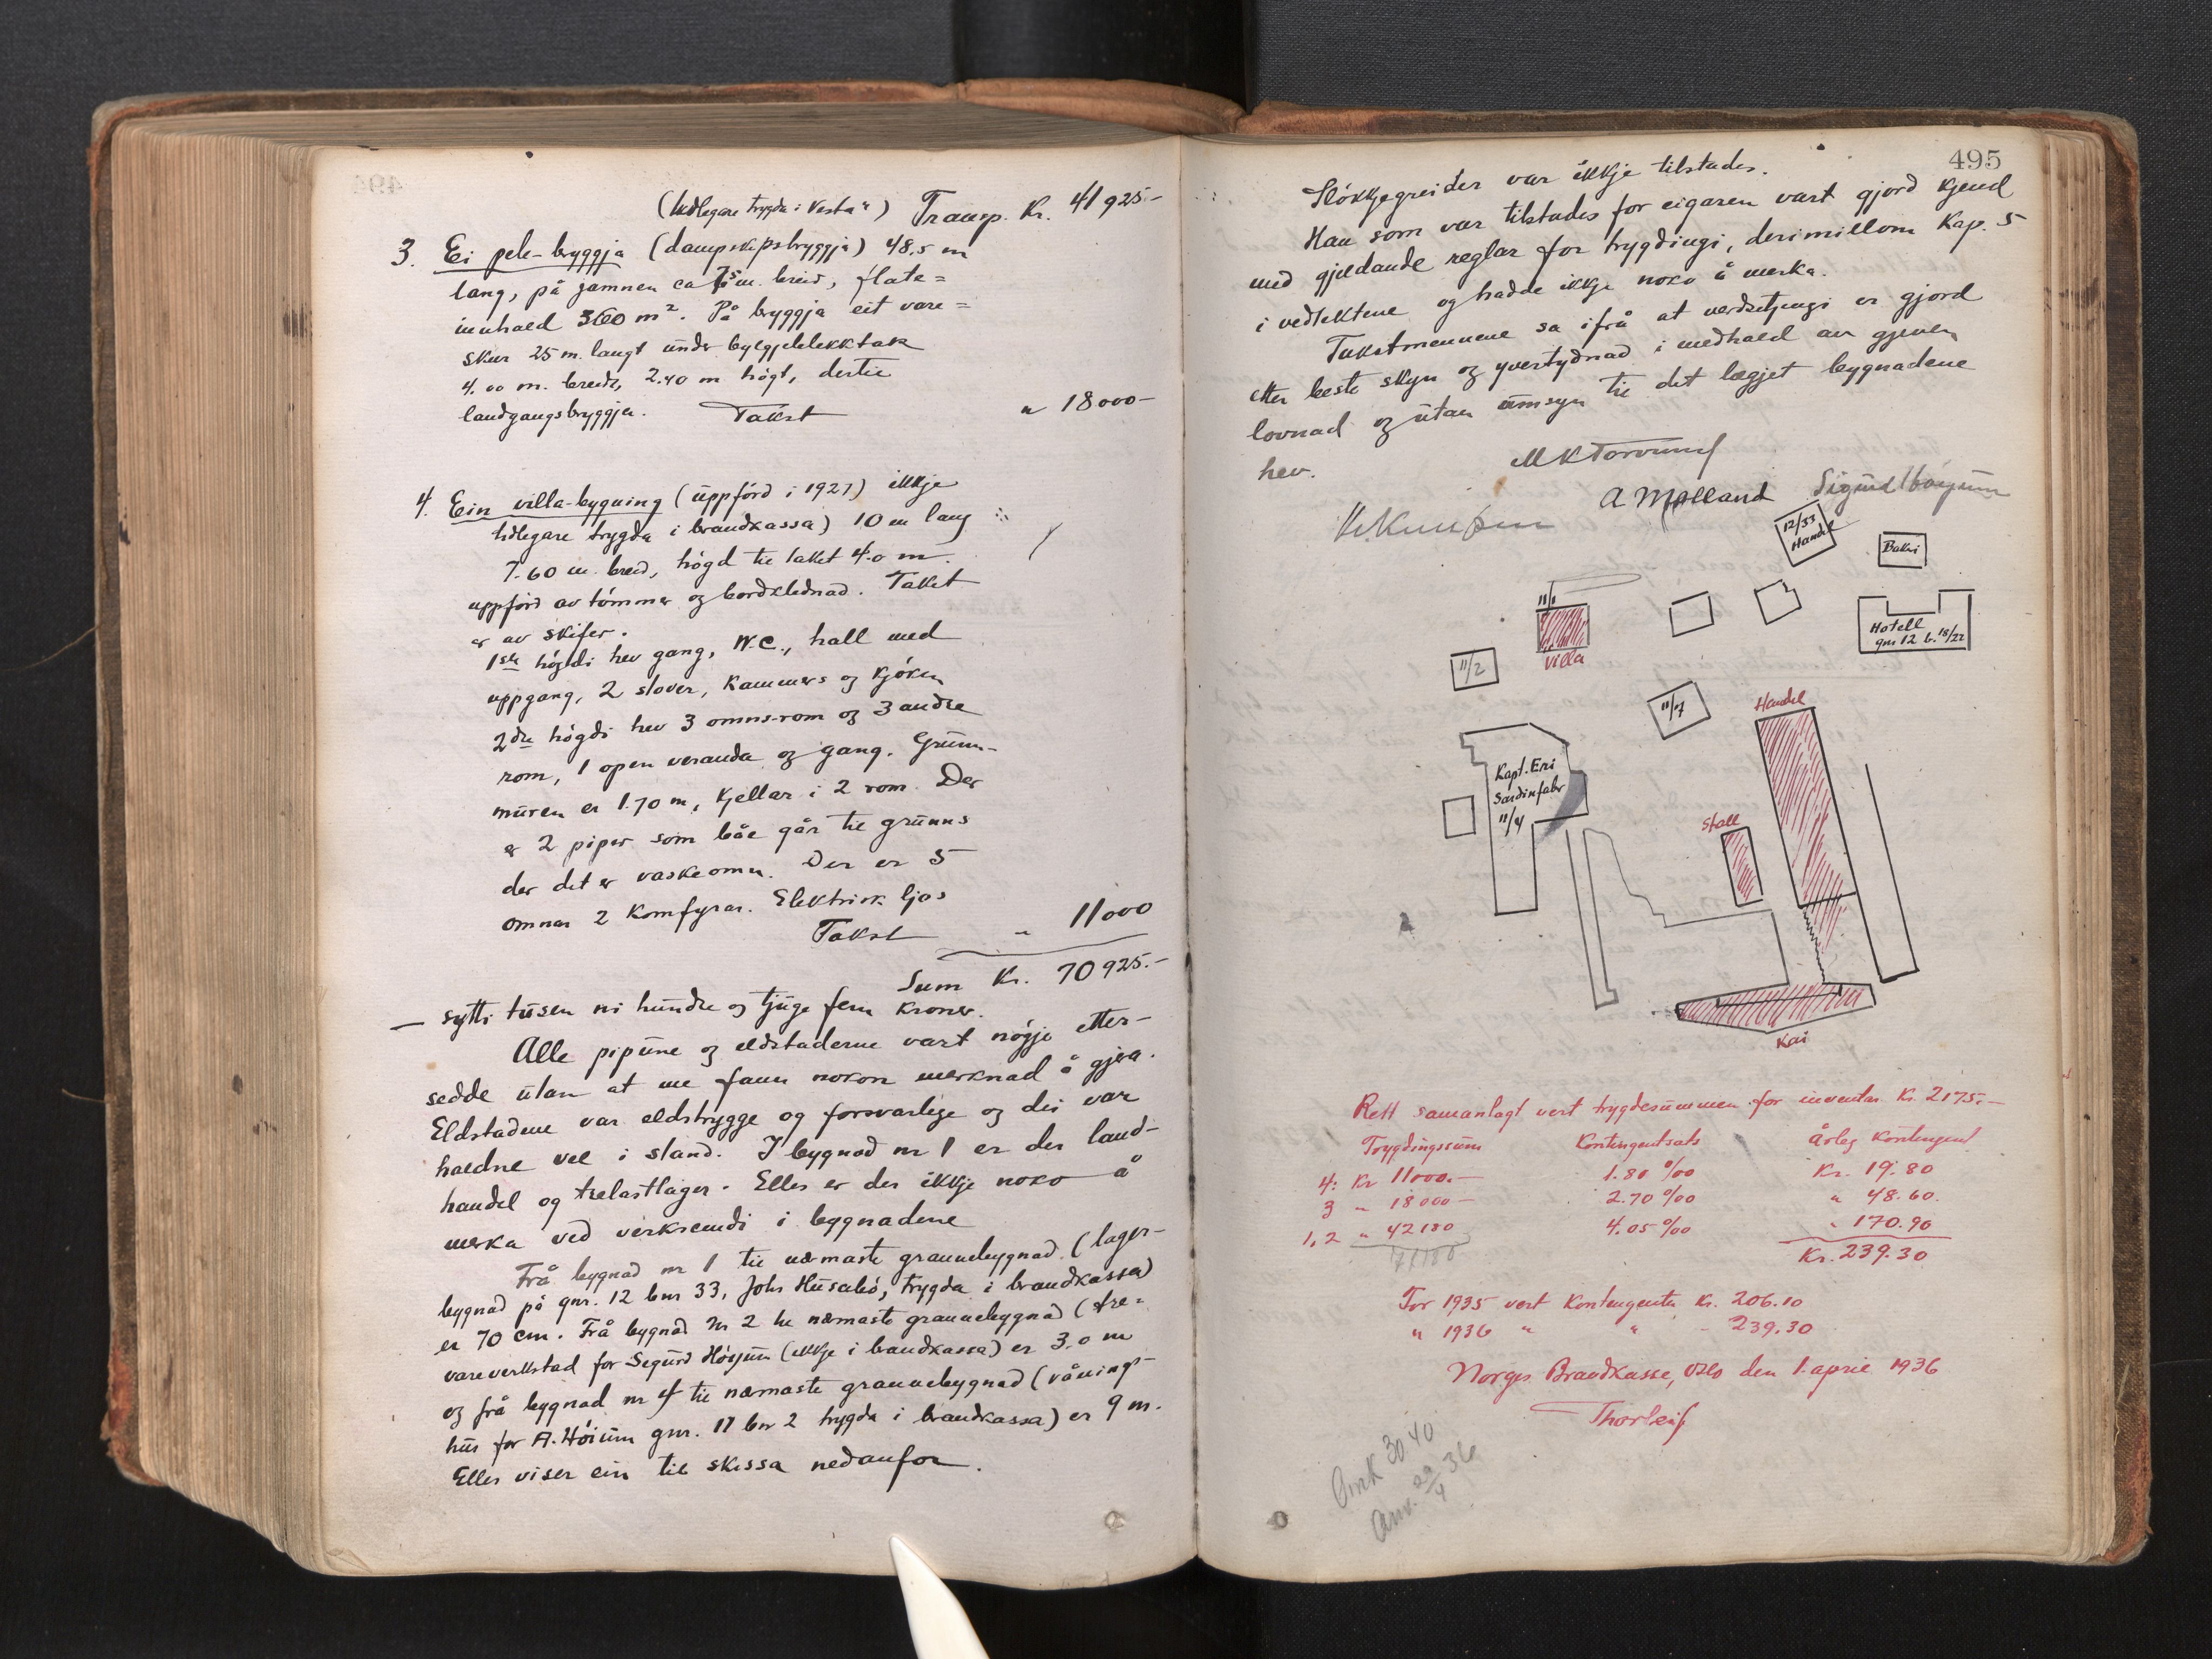 (tidlegare trygda i Vesta") Transp. Kr. 41925.-
3. Ei pele-bryggja (dampskipsbryggja) 48,5 m
lang, på jamnen ca 7,5 m. breid, flate=
innhald 360 m². På bryggja eit vare=
skur 25 m. langt under bylgjeblekktak
4.00 m. breidt, 2.40 m høgt, dertil
landgangsbryggja. Takst " 18000-
4. Ein villa-bygning (uppförd i 1927) ikkje
tidlegare trygda i brandkassa) 10 m lang
7.60 m. breid, högd til taket 4.0 m.
uppförd av tömmer og bordklednad. Taket
er av skifer.
1ste högdi hev gang, W.C., hall med
uppgang, 2 stover, kammers og kjöken
2dre högdi hev 3 omns-rom og 3 andre
rom, 1 open veranda og gang. Grunn-
muren er 1.70 m, kjellar i 2 rom. Der
er 2 piper som båe går til grunns
der det er vaskeomn. Der er 5
omnar 2 komfyrar. Elektrisk ljos
Takst " 11000
Sum Kr. 70925.-
— sytti tusen ni hundre og tjuge fem kroner.
Alle pipune og eldstaderne vart nögje etter-
sedde utan at me fann nokon merknad å gjera.
Eldstadene var eldstrygge og forsvarlege og dei var
haldne vel i stand. I bygnad nr 1 er der land-
handel og trelastlager. Elles er der ikkje noko å
merka ved verksemdi i bygnadene
Frå bygnad nr 1 til nærmaste grannebygnad (lager-
bygnad på gnr. 12 bnr 33, Johs Husabö, trygda i brandkassa)
er 70 cm. Frå bygnad nr 2 til næmaste grannebygnad (tre=
vareverkstad for Sigurd Höyum (ikkje i brandkassa) er 3.0 m
og frå bygnad nr 4 til næmaste grannebygnad (våning-
hus for A. Höium gnr. 11 bnr 2 trygda i brandkassa) er 9 m.
Elles viser ein til skissa nedanfor.
495
Slökkjegreider var ikkje tilstades.
Han som var tilstades for eigaren vart gjord kjend
med gjeldande reglar for trygdingi, derimillom Kap. 5
i vedtektene og hadde ikkje noko å merka.
Takstmennene sa ifrå at verdsetjingi er gjord
etter beste skyn og yvertydnad i medhald av gjeven
lovnad og utan umsyn til det lægjet bygnadene
hev.
A Mølland
12/33
Handel
Bakri
11/1
Villa
11/2
Hotell
gnr 12 b. 18/22
11/7
Handel
Kapt. Eri
Sardinfabr
11/4
Stall
Kai
Rett samanlagt vert trygdesummen for inventar Kr. 2175.-
Trygdingssum Kontingentsats Årleg kontingent
4: Kr 11000.- 1.80 ‰ Kr. 19.80
3 " 18000- 2.70 ‰ " 48.60.
1,2 " 42180 4.05 ‰ " 170.90
71180 Kr. 239.30
For 1935 vert kontingenten Kr. 206.10
" 1936 " " - 239.30
Norges Brandkasse, Oslo den 1. april 1936
Thorleif
30 40
Anv. 29/4 36